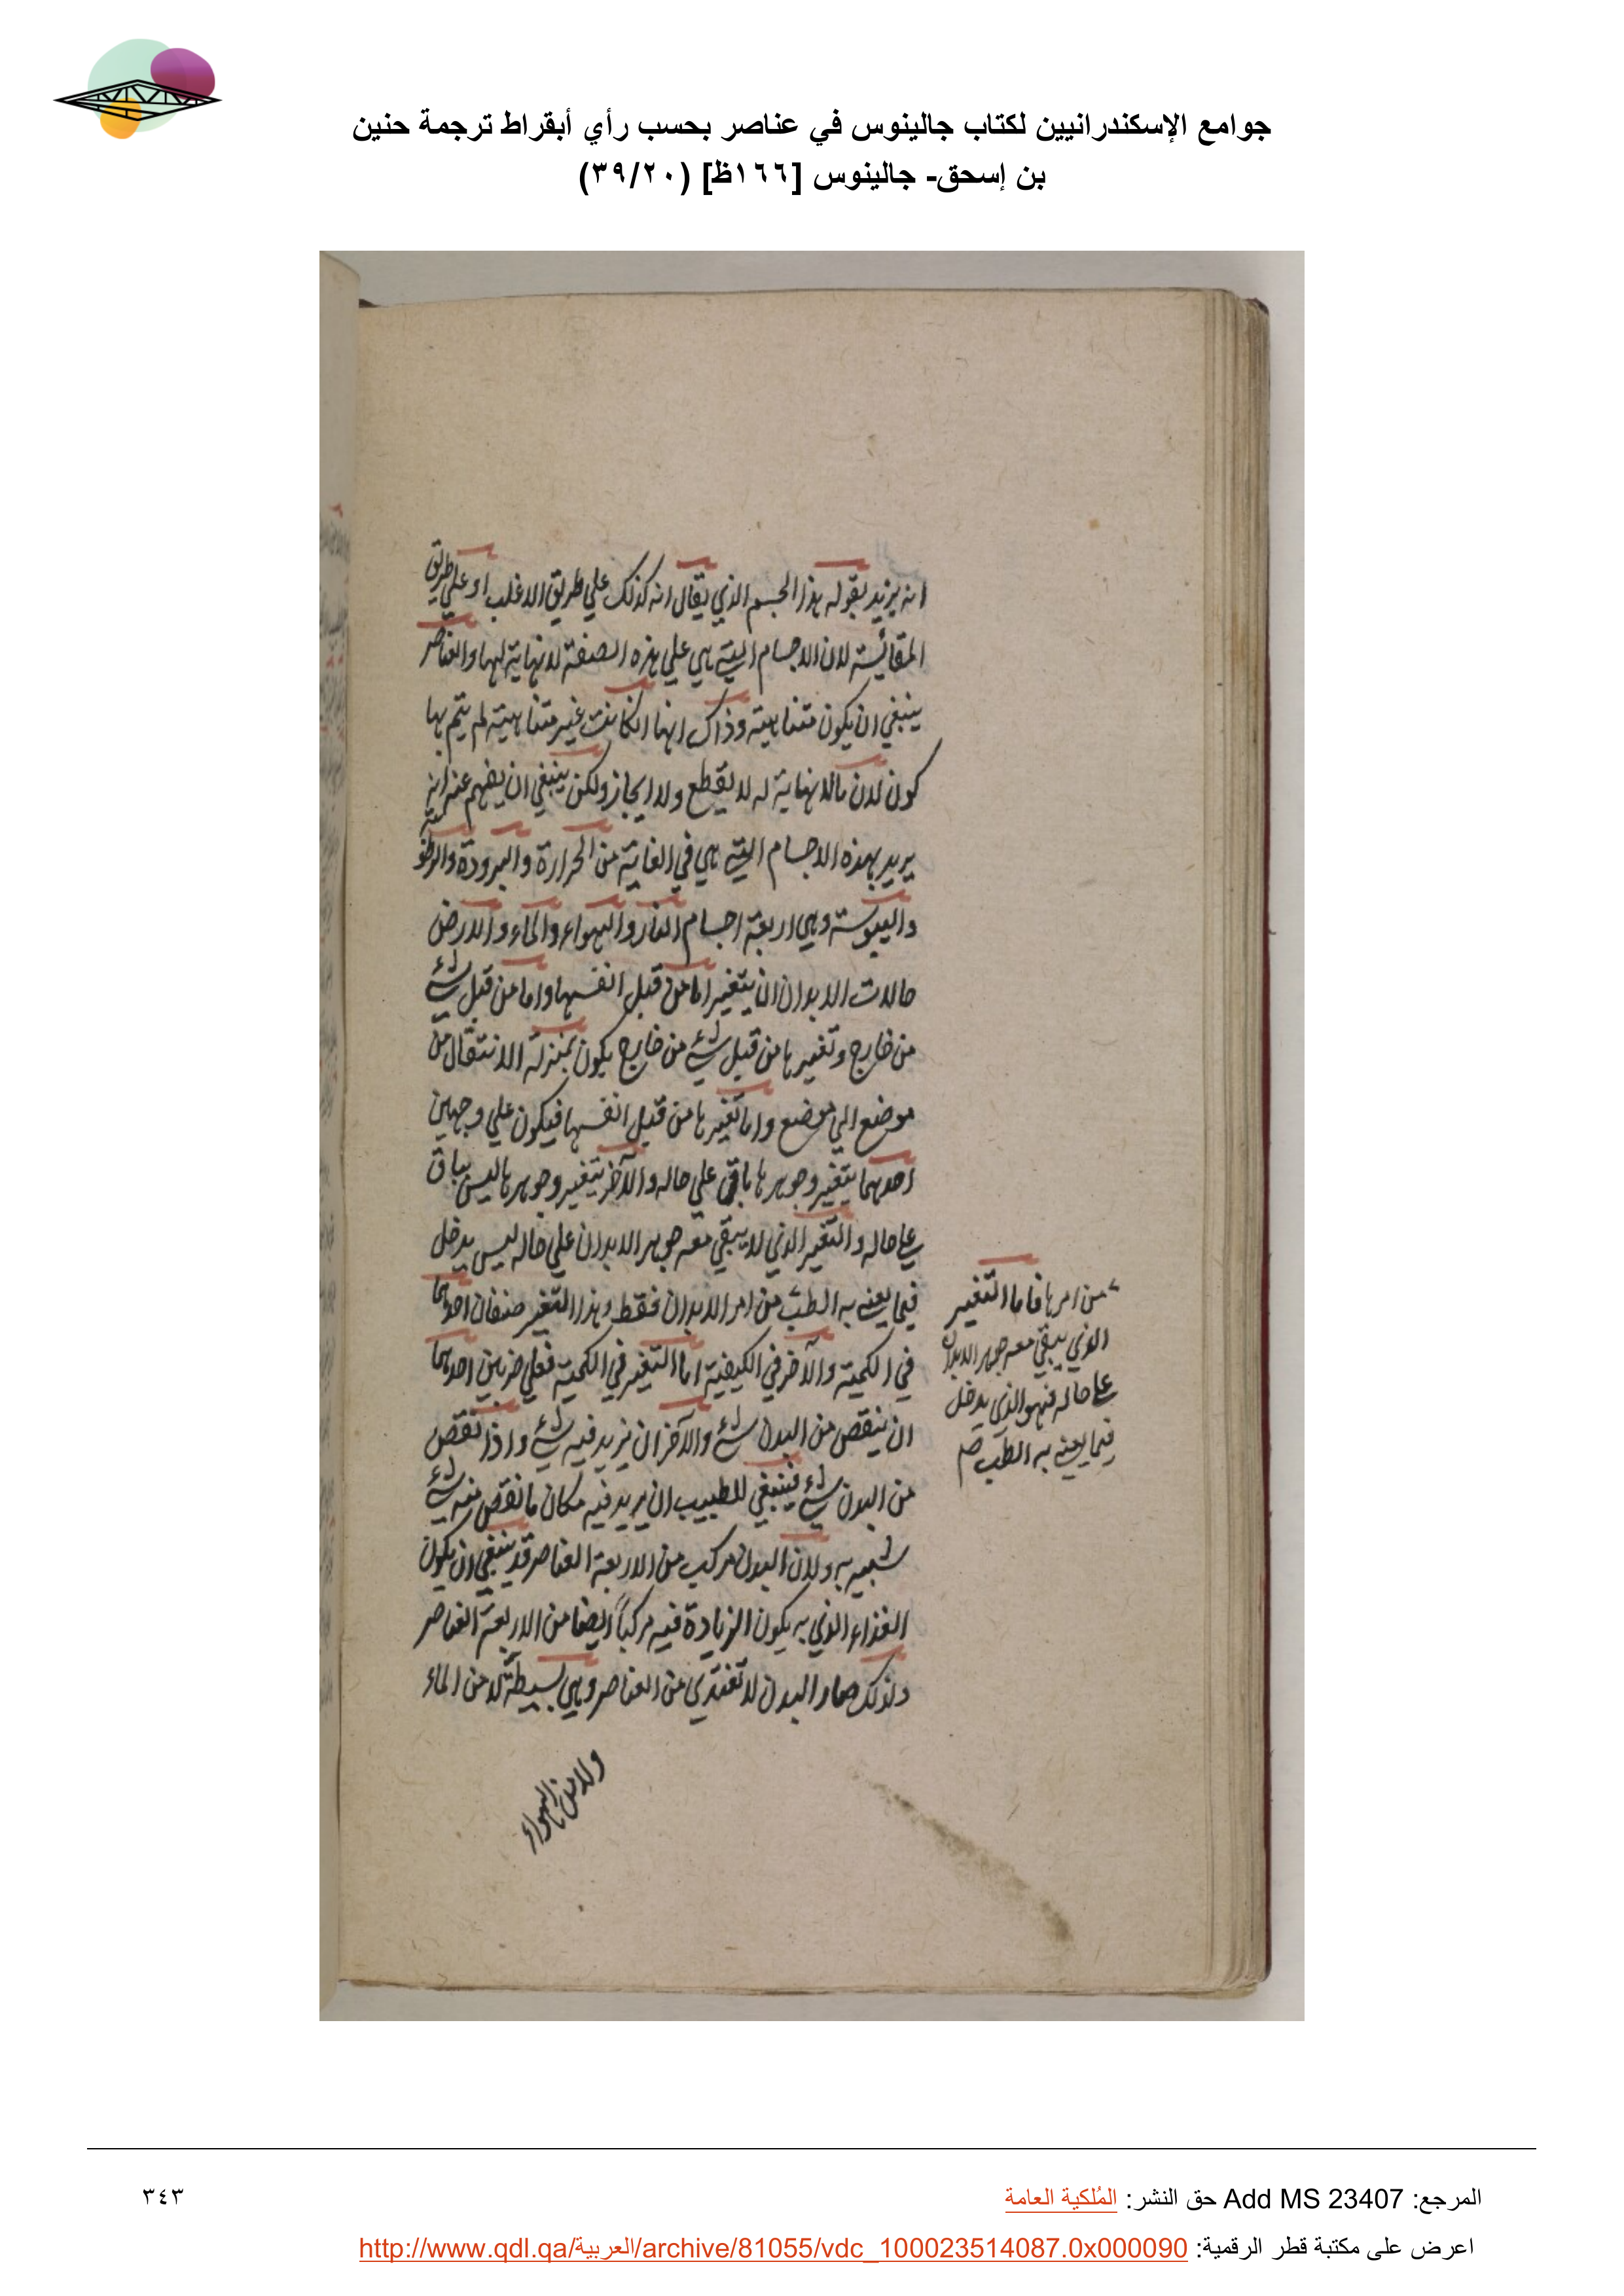 جوامع الإسكندرانيين لكتاب جالينوس في عناصر بحسب رأي أبقراط ترجمة حنين
بن إسحق- جالينوس [١٦٦ظ] (٣٩/٢٠)
انه يريد بقوله هذا الجسم الذي يقال انه كذلك علي طريق الاغلب او علي طريق
المقائسة لان الاجسام التي هي علي هذه الصفة لا نهاية لها والعناصر
ينبغي ان يكون متناهية وذاك انها ان كانت غير متناهية لم يتم بها
كون لان مالا نهاية له لا يقطع ولا يجاز ولكن ينبغي ان يفهم عنه انه
يريد بهذه الاجسام التي هي في الغاية من الحرارة والبرودة والرطوبة
واليبوسة وهي اربعة اجسام النار والهواء والماء والارض
حالات الابدان ان يتغير اما من قبل انفسها واما من قبل شيء
من خارج وتغيرها من قبل شيء من خارج يكون بمنزلة الانتقال من
موضع الي موضع واما تغيرها من قبل انفسها فيكون علي وجهين
احدهما يتغير وجوهرها باقي علي حاله والآخر يتغير وجوهرها ليس بباق
علي حاله والتغير الذي لا يبقي معه جوهر الابدان علي حاله ليس يدخل
فيما يعنى به الطب من امر الابدان فقط وهذا التغير صنفان احدهما
في الكمية والآخر في الكيفية اما التغير في الكمية فعلي ضربين احدهما
ان ينقص من البدن شيء والآخر ان يزيد فيه شيء واذا نقص
من البدن شيء فينبغي للطبيب ان يزيد فيه مكان ما نقص منه شيء
شبيه به ولان البدن مركب من الاربعة العناصر قد ينبغي ان يكون
الغذاء الذي به يكون الزيادة فيه مركباً ايضا من الاربعة العناصر
ولذلك صار البدن لا تغتذي من العناصر وهي بسيطة لا من الماء
ولا من الهواء
من امرها فاما التغير
الذي يبقي معه جوهر الابدان
علي حاله فهو الذي يدخل
فيما يعنى به الطب صح
المرجع: Add MS 23407 حق النشر: المُلكية العامة
٣٤٣
اعرض على مكتبة قطر الرقمية: http://www.qdl.qa/العربية/archive/81055/vdc_100023514087.0x000090